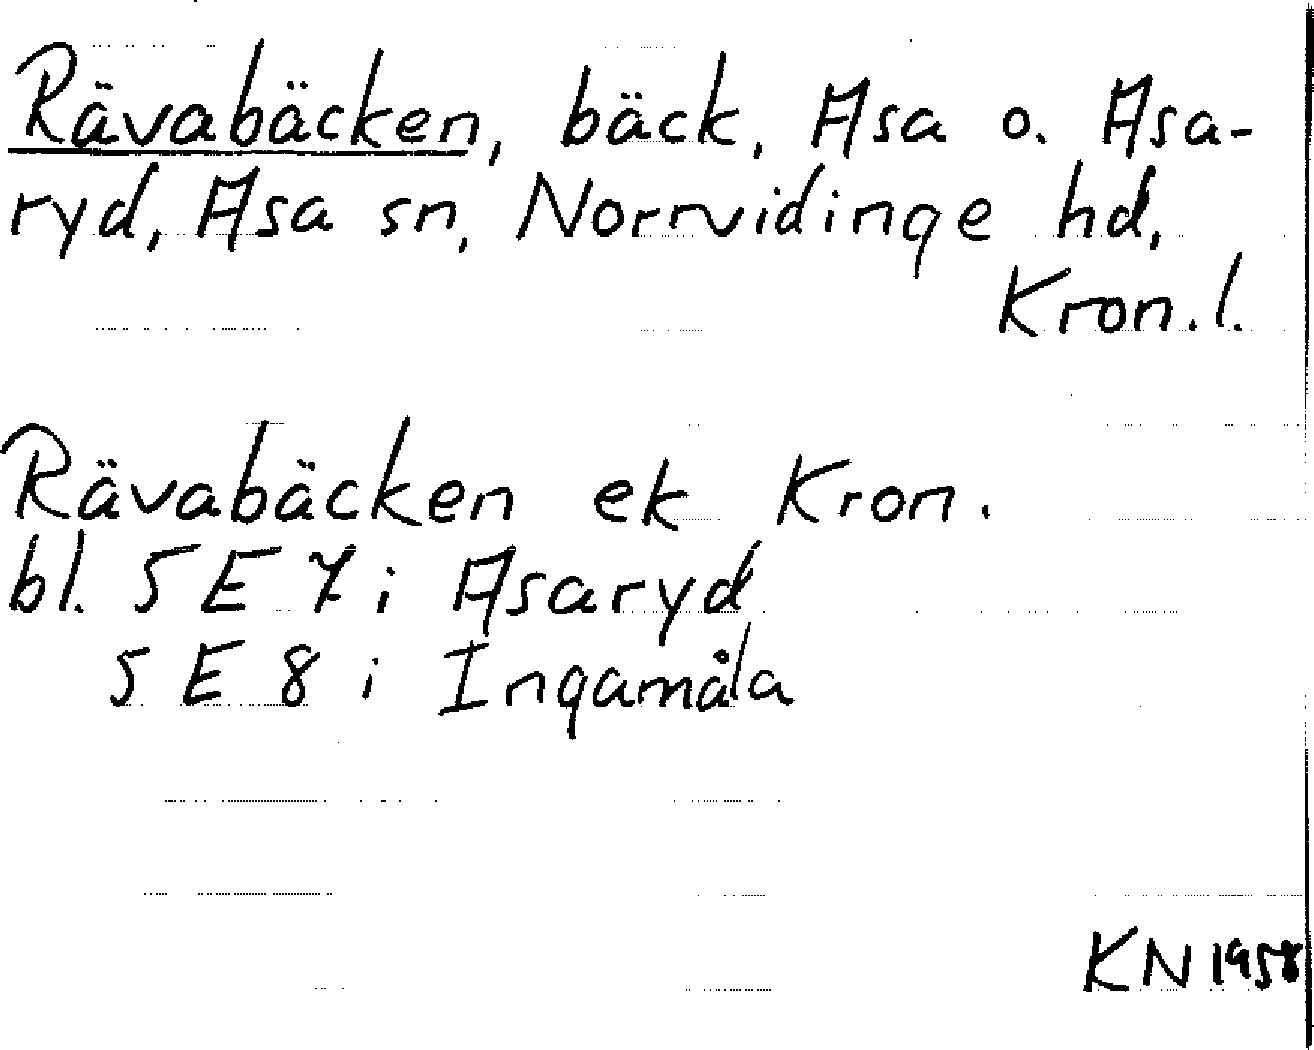 Rävabäcken, bäck, Asa o. Asa-
ryd, Asa sn, Norrvidinge hd,
Kron. l.
Rävabäcken ek Kron.
bl. 5 E 7 i Asaryd
5 E 8 i Ingamåla
KN 1958